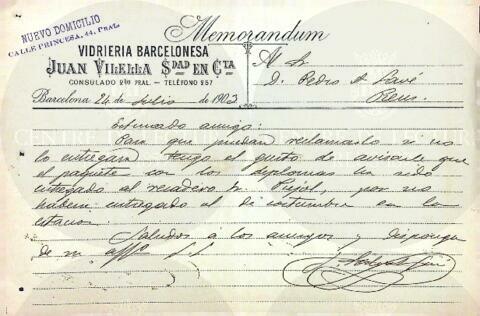 NUEVO DOMICILIO
CALLE PRINCESA, 44, PRAL.
Memorandum
VIDRIERIA BARCELONESA
JUAN VILELLA SDAD EN CTA
CONSULADO 2TO PRAL. - TELÉFONO 957
Barcelona 24 de Julio de 1903
Al Sr
D. Pedro A Savé
Reus.
Estimado amigo:
Para que puedan reclamarlo si no
lo entregan tengo el gusto de avisarle que
el paquete con los diplomas ha sido
entregado al recadero Sr. Pujol, por no
haberse entregado al de costumbre en la
estacion.
Saludos á los amigos y disponga
de su affº S. S.